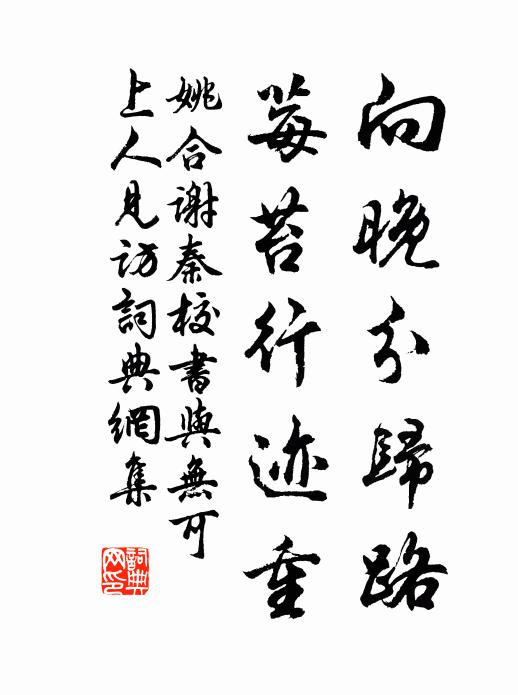 向晚分歸路
莓苔行迹重
姚合謝秦校書與無可
上人見訪詞典網集
詞典
网印